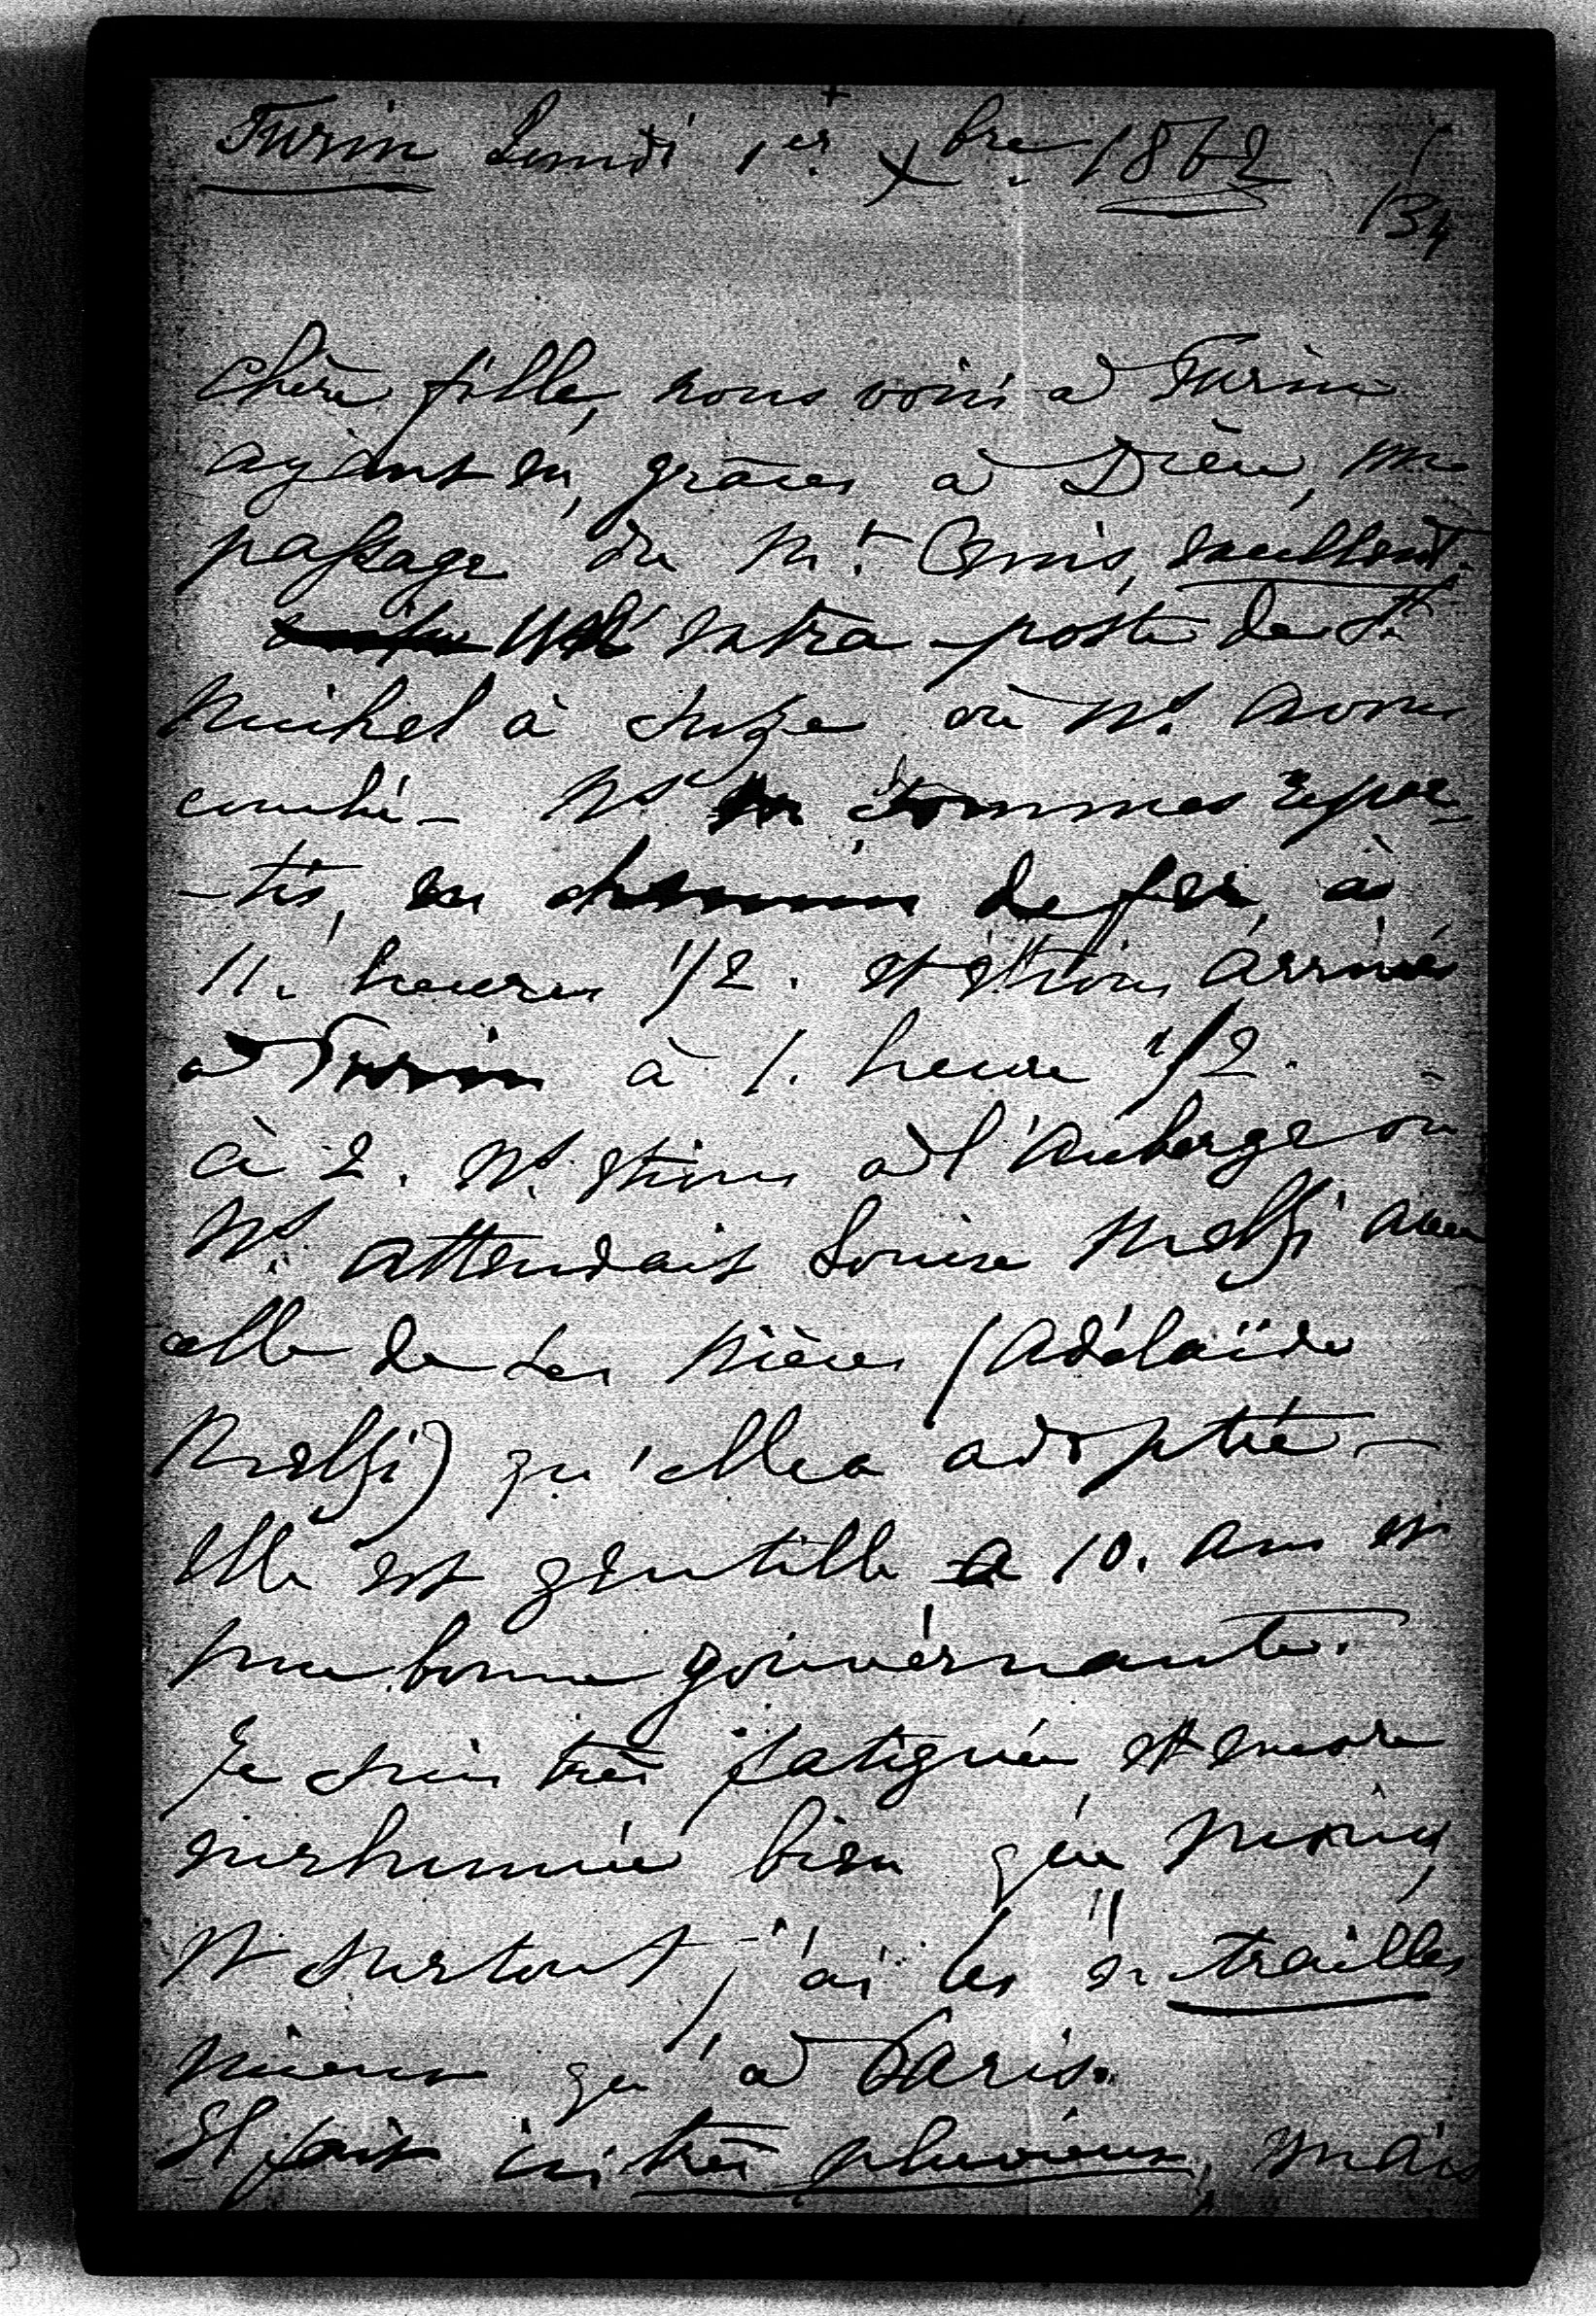 Turin Lundi 1er Xbre 1862
134
Chère fille, nous voici à Turin
ayant eu, grâces à Dieu, un
passage du Mt. Cenis, excellent.
extra-poste de St.
Michel à Suze où Ns. avons
couché - Ns sommes repar-
-tis, en chemin de fer, à
11. heures 1/2. et étions arrivés
à Turin à 1. heure 1/2.
à 2. Ns. étions à l'Auberge où
Ns. attendait Louise Melzi avec
elle de ses Nièces (Adélaïde
Melzi) qu'elle a adoptée -
Elle est gentille a 10. ans et
une bonne gouvernante.
Je suis très fatiguée, et encore
enrhumée bien que moins,
et surtout, j'ai les entrailles
mieux qu'à Paris.
Il fait ici très pluvieux, mais